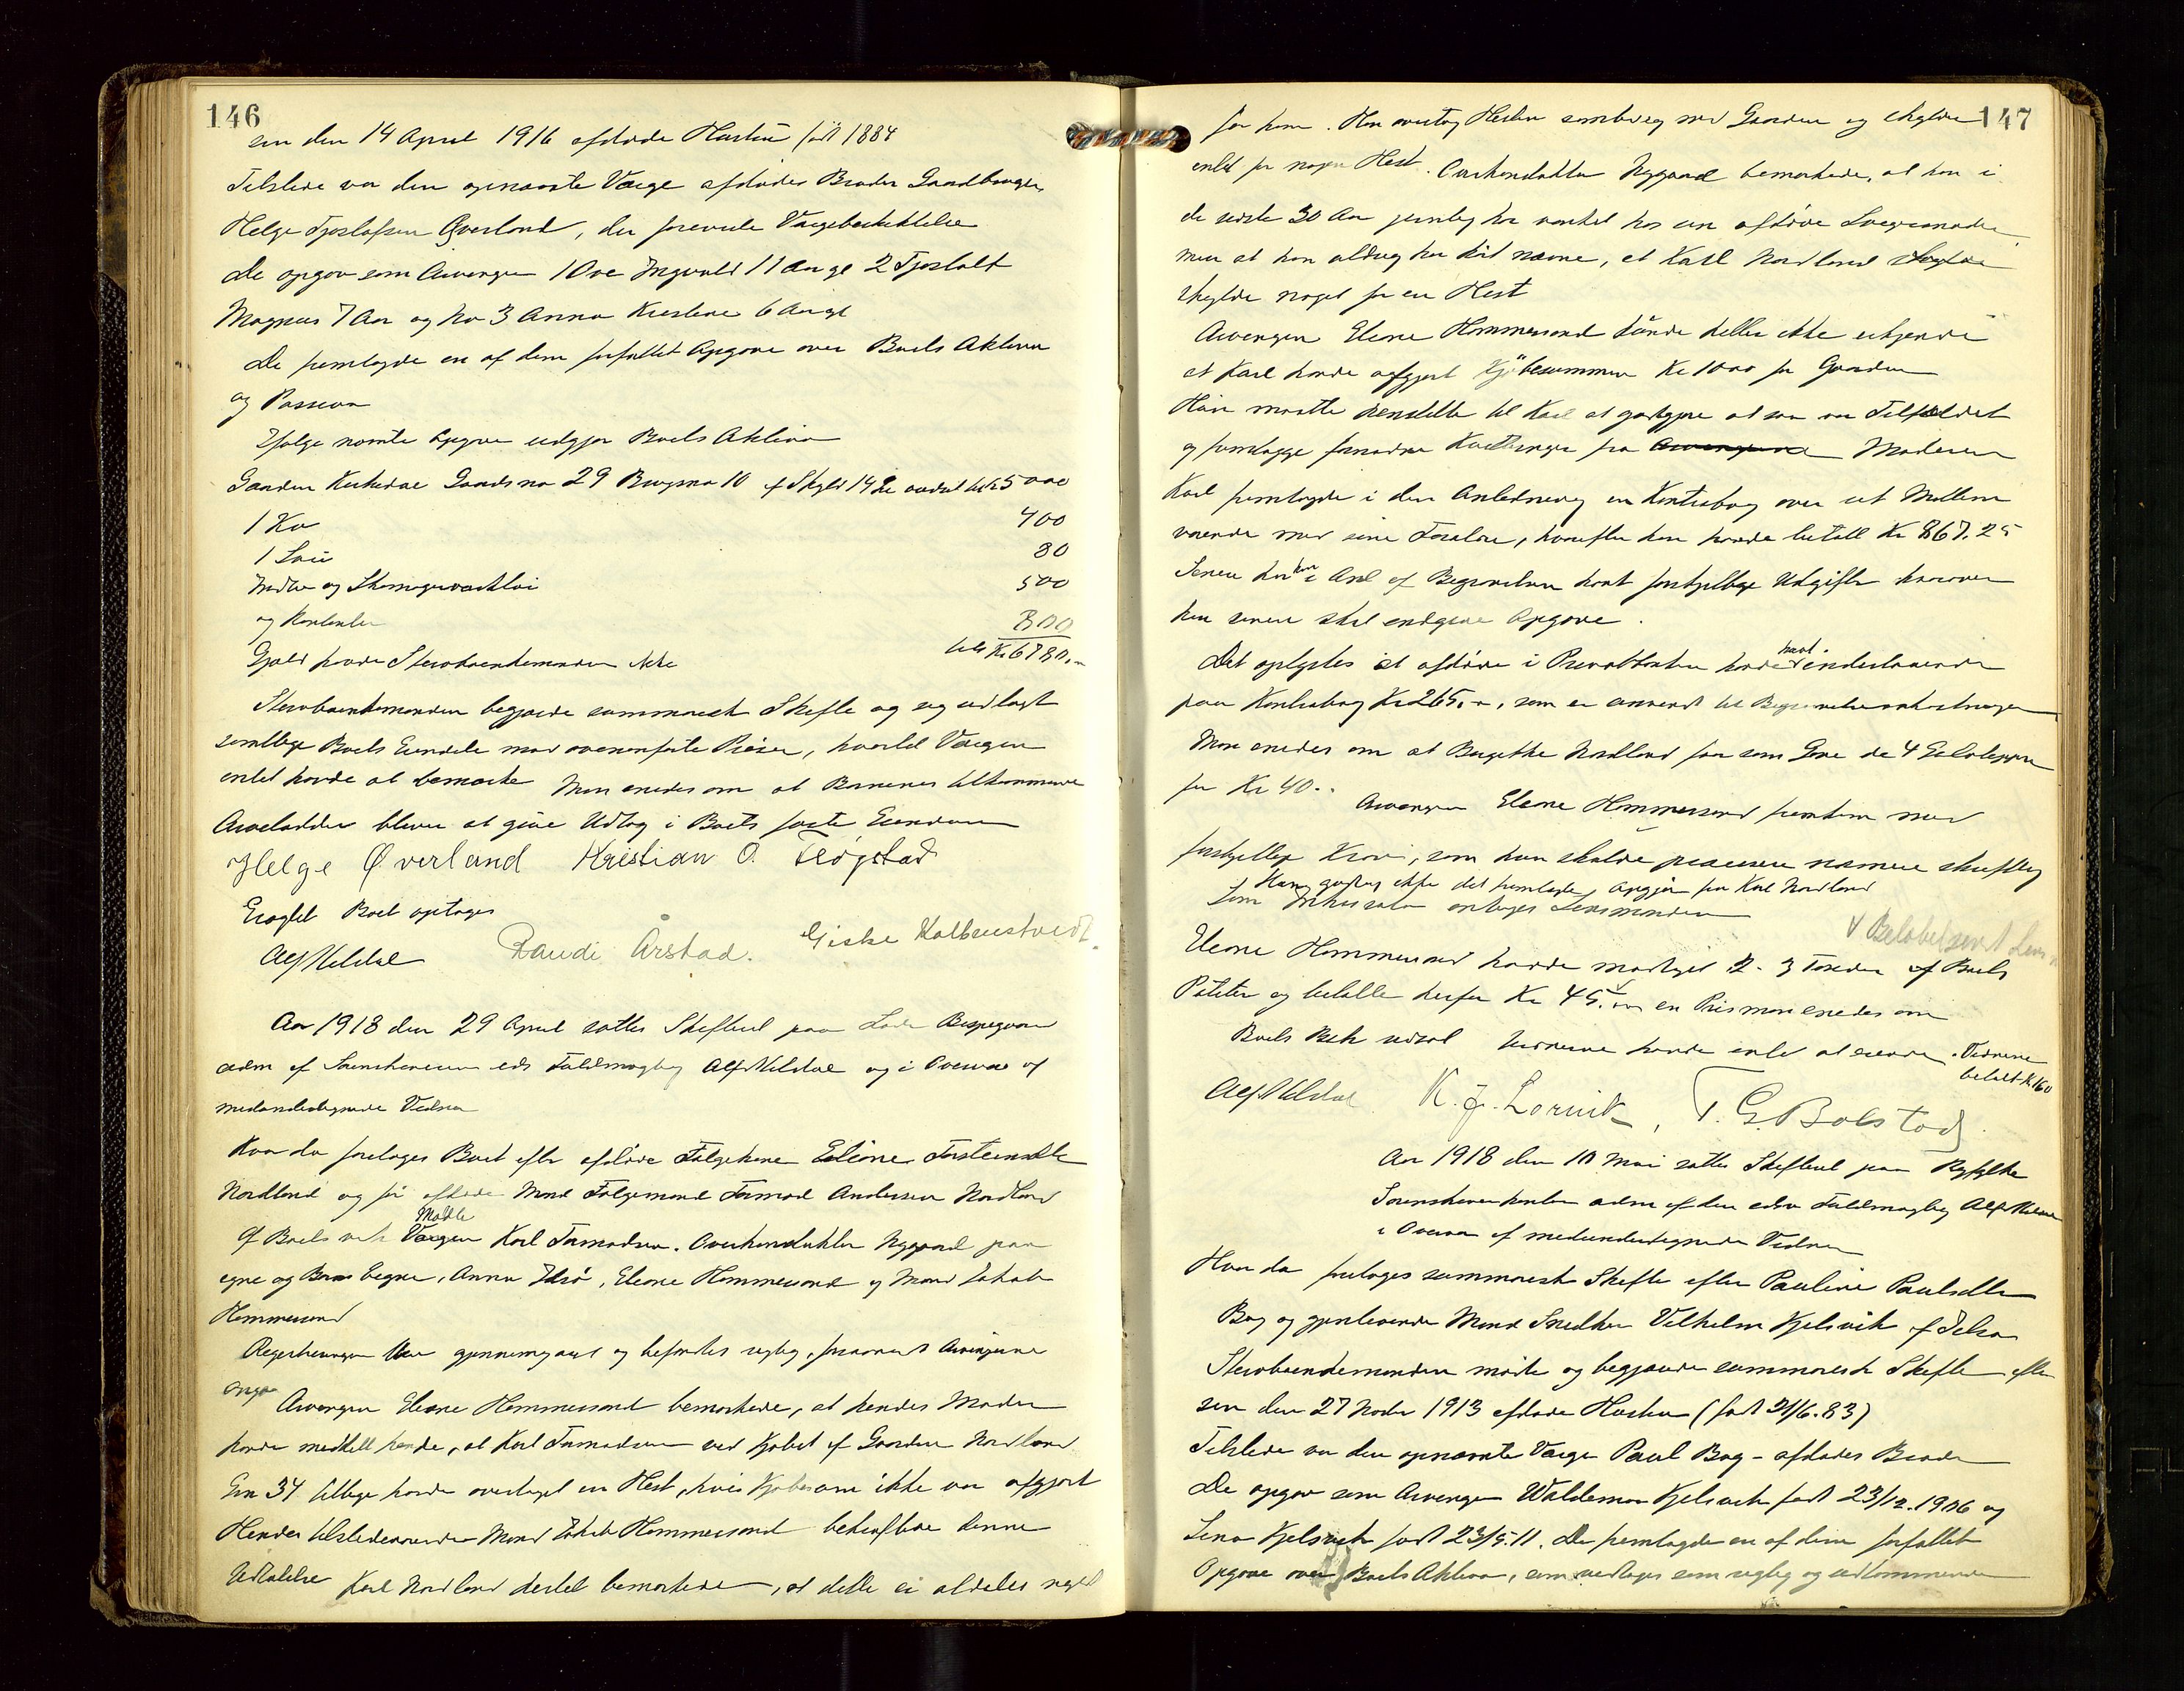 146
sin den 14 April 1916 afdøde Hustru født 1884
Tilstede var den opnævnte Værge afdødes Broder Gaardbruger
Helge Tjostofsen Øverland, der foreviste Værgebeskikkelse
De opgav som Arvinger 1 Ove Ingvald 11 Aar gl 2 Tjostolf
Magnus 7 Aar og No 3 Anna Kristine 6 Aar gl
De fremlagde en af dem forfattet Opgave over Boets Aktiva
og Passiva
Ifølge nævnte Opgave udgjør Boets Aktiva
Gaarden Gaards no 29 Brugsno 10 af Skyld vurdert til Kr 5000
1 Ko 400
1 80
Indbo og 500
og Kontanter 800
Gjæld havde Stervboenkemanden ikke tils Kr 6780.-
Stervboenkemanden begjærede summarisk Skifte og sig udlagt
samtlige Boets Eiendele mod ovenanførte Priser, hvortil Værgen
intet havde at bemærke Man enedes om at Børnenes tilkommende
Arvelodder bliver at give Udlæg i Boets faste Eiendom
Helge Øverland Kristian O.
Boet optages
Alf Kildal Raudi Årstad. Giske Kolbeinstvedt.
Aar 1918 den 29 April sattes Skifteret paa
adm af Sorenskriveren eds Fuldmægtig Alf Kildal og i Overvær af
medundertegnede Vidner
Hvor da foretoges Boet efter afdøde Følgekone Eliene Torsteinsdtr
Nordland og før afdøde Mand Følgemand Tormod Andersen Nordland
Af Boets vedk Mødte Værgen Karl Tormodsen. Overkonduktør Nygaard paa
egne og Børns Vegne, Anna Idsø, Elene Hommersand og Mand Jakob
Hommersand
Registreringen blev gjennemgaaet og befandtes rigtig, forsaavidt Arvingerne
angaar
Arvingen Elene Hommersand bemærkede, at hendes Moder
havde meddelt hende, at Karl Tormodsen ved Kjøbet af Gaarden Nordland
Gno 34 tillige havde overtaget en Hest, hvis Kjøbesum ikke var afgjort
Hendes tilstedeværende Mand Jakob Hommersand bekræftede denne
Udtalelse Karl Nordland dertil bemærkede, at dette er aldeles nyt
147
for ham. Han overtog Hesten samtidig med Gaarden og skylder
intet for nogen Hest. Overkonduktør Nygaard bemærkede, at han i
de sidste 30 Aar jevnlig har vanket hos sin afdøde Svigermoder
men at han aldrig har hørt nævne, at Karl Nordland
skylde noget for en Hest
Arvingen Elene Hommersand kunde heller ikke erkjende
at Karl havde afgjort Kjøbesummen Kr 1000 for Gaarden
Hun maatte henstille til Karl at godtgjøre at saa var Tilfældet
og fremlægge fornødne Kvitteringer fra Arvingerne Moderen
Karl fremlagde i den Anledning en Kontrabog over et Mellem
værende med sine Forældre, hvorefter han havde betalt Kr 867.25
Senere har han i Anl af Begravelsen havt forskjellige Udgifter hvorover
han senere skal indgive Opgave.
Det oplystes at afdøde i Privatbanken havde havt indestaaende
paa Kontrabog Kr 265.-, som er anvendt til Begravelsesomkostninger
Man enedes om at Birgitte Nordland faar som Gave de 4
for Kr 40.- Arvingen Elene Hommersand fremkom med
forskjellige Krav, som hun skulde præcisere nærmere skriftlig
Hun godtog ikke det fremlagte Opgjør fra Karl Nordland
Som Inkassator antages Lensmanden
V Beløbet sendt Lensm
Elene Hommersand havde modtaget 2-3 Tønder af Boets
Poteter og betalte herfor Kr 45.V- en Pris man enedes om
Boets Beh udsat Vidnerne havde intet at erindre. Vidnerne
betalt Kr 1.60
Alf Kildal K. J. Lornik, T. G. Bolstad.
Aar 1918 den 10 Mai sattes Skifteret paa Ryfylke
Sorenskriverkontor adm af den edsv Fuldmægtig Alf Kildal
i Overvær af medundertegnede Vidner
Hvor da foretoges summarisk Skifte efter Pauline Paulsdtr
Bog og gjenlevende Mand Snedker Vilhelm Kjelsvik af Jelsa
Stervboenkemanden mødte og begjærede summarisk Skifte efter
sin den 27 Novbr 1913 afdøde Hustru (født 21/6.83)
Tilstede var den opnævnte Værge Paul Bog - afdødes Broder
De opgav som Arvinger Waldemar Kjelsvik født 23/12.1906 og
Lena Kjelsvik født 23/5.11. De fremlagde en af dem forfattet
Opgave over Boets Aktiva, som vedtoges som rigtig og udtømmende